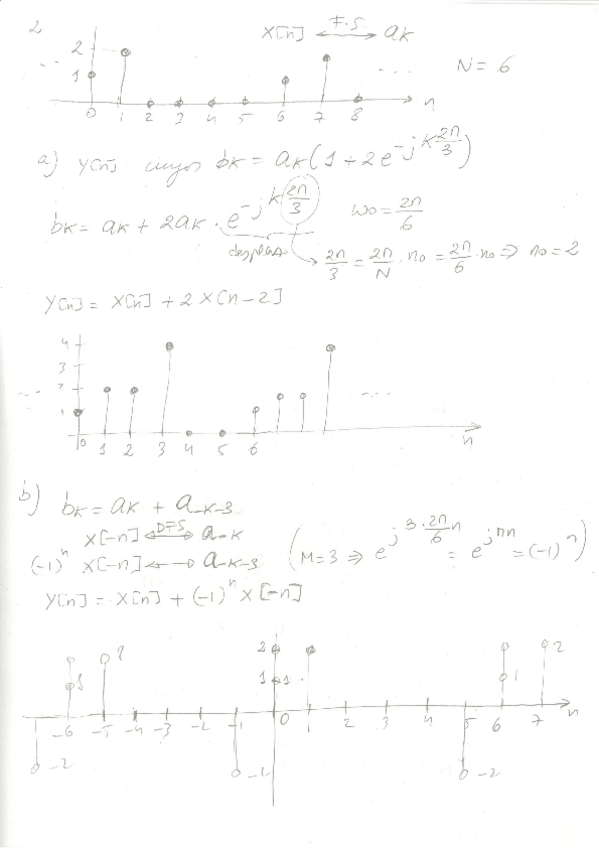 2
X[n] ⟷ F.S. aK
N = 6
2
1
0 1 2 3 4 5 6 7 8 n
a) Y[n] cuya bK = aK (1 + 2e^-jK 2π/3)
bK = aK + 2aK · e^-jK 2π/3 ω0 = 2π/6
desplaz → 2π/3 = 2π/N · n0 = 2π/6 · n0 ⇒ n0 = 2
Y[n] = X[n] + 2X[n-2]
4
3
2
1
0 1 2 3 4 5 6 n
b) bK = aK + a-K-3
X[-n] ⟷ DFS a-K
(-1)^n X[-n] ⟷ a-K-3 (M=3 ⇒ e^j3·2π/6 n = e^jπn = (-1)^n)
Y[n] = X[n] + (-1)^n X[-n]
1 2 2 1 1 1 2
-6 -5 -4 -3 -2 -1 0 2 3 4 5 6 7 n
-2 -2 -2